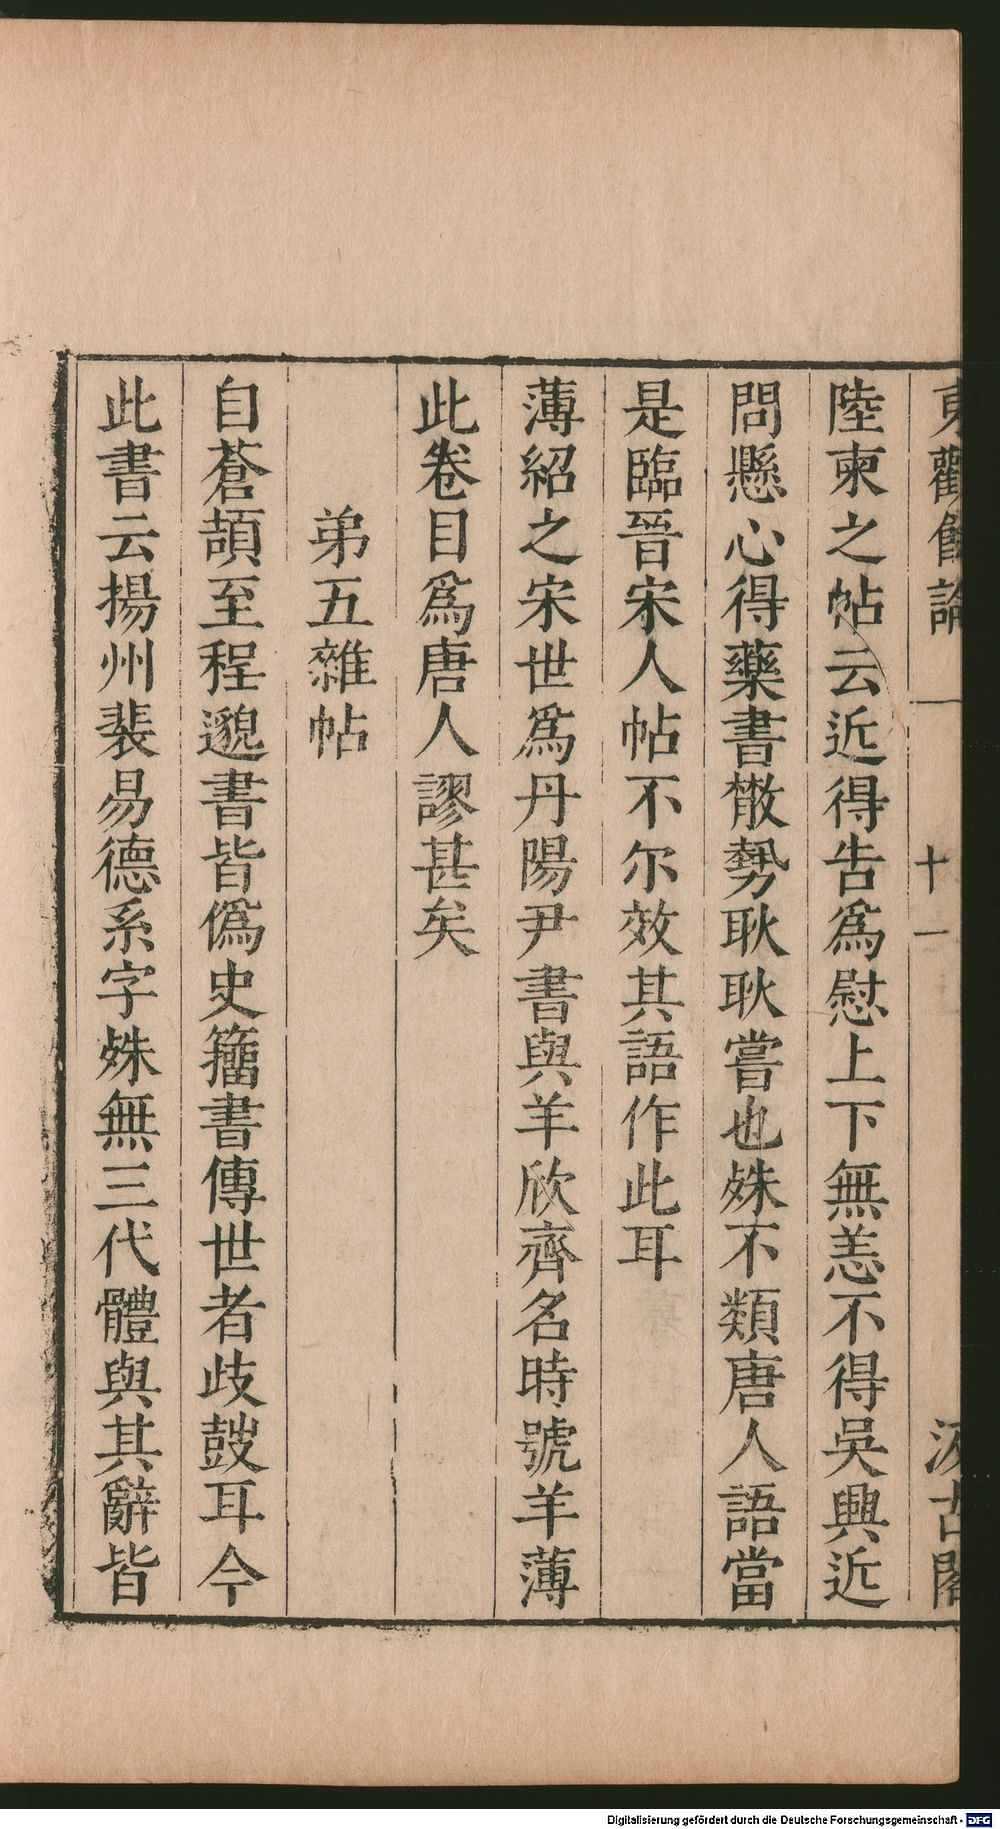 東觀餘論 一 十一 汲古閣
陸柬之帖云近得告爲慰上下無恙不得吳興近
問懸心得藥書散勢耿耿嘗也殊不類唐人語當
是臨晉宋人帖不尔效其語作此耳
薄紹之宋世爲丹陽尹書與羊欣齊名時號羊薄
此卷目爲唐人謬甚矣
弟五雜帖
自蒼頡至程邈書皆僞史籒書傳世者歧鼓耳今
此書云揚州裴易德系字殊無三代體與其辭皆
Digitalisierung gefördert durch die Deutsche Forschungsgemeinschaft - DFG